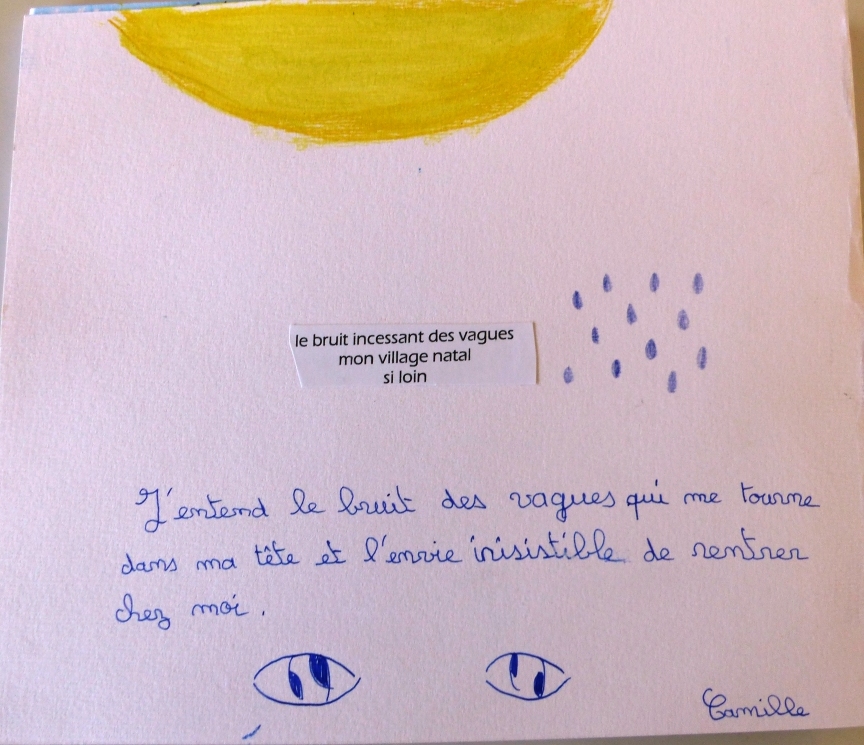 le bruit incessant des vagues
mon village natal
si loin
J'entend le bruit des vagues qui me tourne
dans ma tête et l'envie inisistible de rentrer
chez moi.
Camille